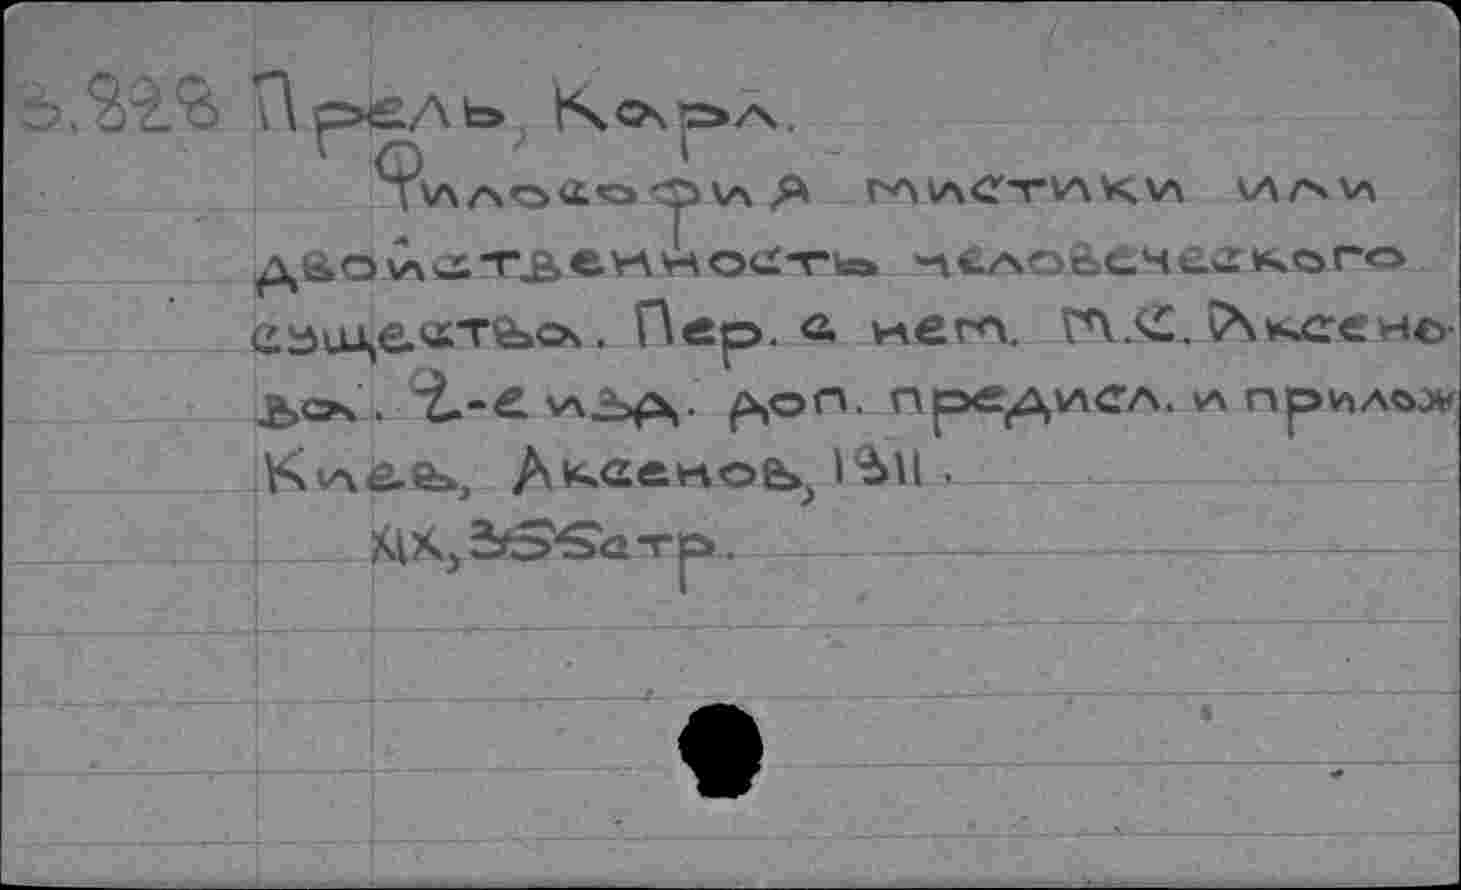 Прель, Карл.
Философия мистики или
двойственность человеческого
существа. Пер. с нем. М.С. Аксено-
ва. 2-е изд. доп. предисл. и прилож
Киев, Аксенов, 1911.
XIX, 355 стр.